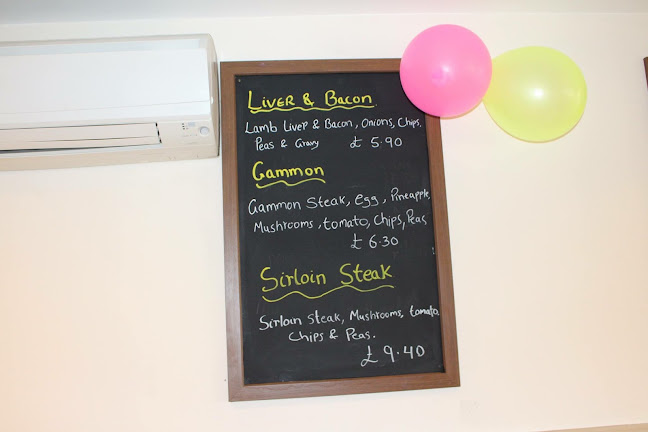 Liver & Bacon
Lamb Liver & Bacon, Onions, Chips,
Peas & Gravy £ 5.90
Gammon
Gammon Steak, egg, Pineapple,
Mushrooms, tomato, Chips, Peas
£ 6.30
Sirloin Steak
Sirloin Steak, Mushrooms, tomato,
Chips & Peas.
£ 9.40